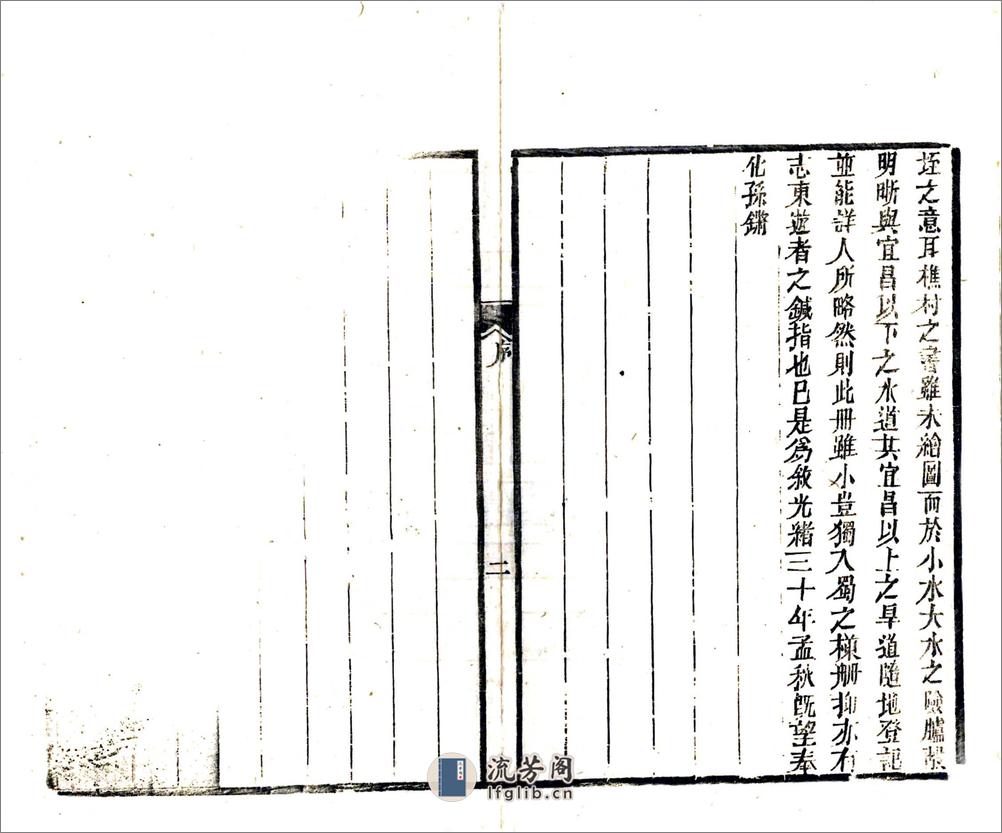 垤之意耳樵村之書雖未繪圖而於小水大水之險臚列
明晰與宜昌以下之水道其宜昌以上之旱道隨地登記
並能詳人所略然則此冊雖小豈獨入蜀之楳冊抑亦有
志東遊者之鍼指也已是爲敘光緒三十年孟秋旣望奉
化孫鏘
序
二
流芳阁
lfglib.cn